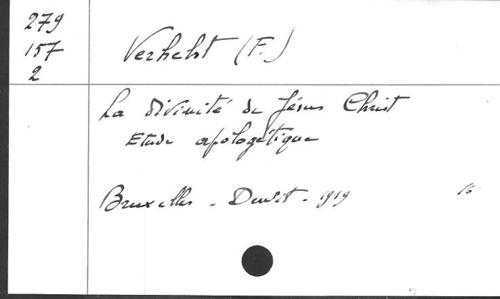 279
157
2
Verhelst (F.)
La divinité de Jésus Christ
Etude apologétique
Bruxelles - Dewit - 1919
16